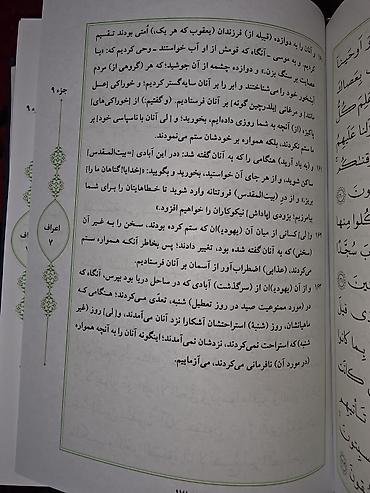 جزء ۹
۱۶۰ و آنان را به دوازده (قبیله از) فرزندان (یعقوب که هر یک،) اُمتی بودند تقسیم
کردیم. و به موسی ـ آنگاه که قومش از او آب خواستند ـ وحی کردیم که: «با
عصایت بر سنگ بزن.» و دوازده چشمه از آن جوشید؛ که هر (گروهی از) مردم
آبشخور خود را می‌شناختند و ابر را بر آنان سایه‌گستر کردیم؛ و خوراکی [عسل
مانند] و مرغانی [بلدرچین گونه] بر آنان فرستادیم. (و گفتیم:) از [خوراکی‌های]
پاکیزه (از) آنچه به شما روزی داده‌ایم، بخورید؛ و [لی آنان با ناسپاسی خود] بر
ما ستم نکردند، بلکه همواره بر خودشان ستم می‌نمودند.
۱۶۱ و (به یاد آرید) هنگامی را که به آنان گفته شد: «در این آبادی [=بیت‌المقدس]
ساکن شوید، و از هر جای آن خواستید، بخورید و بگویید: [خدایا! گناهان ما را]
بریز؛ و از در (بیت‌المقدس) فروتنانه وارد شوید تا خطاهایتان را برای شما
بیامرزیم؛ بزودی (پاداش) نیکوکاران را خواهیم افزود.»
۱۶۲ و[لی] کسانی از میان آن (یهودی)ان که ستم کرده بودند، سخن را به غیر آن
(سخنی) که به آنان گفته شده بود، تغییر دادند؛ پس بخاطر آنکه همواره ستم
می‌کردند، (عذابی) اضطراب‌آور از آسمان بر آنان فرستادیم.
۱۶۳ و از آن (یهودی)ان از (سرگذشت) آبادی که در ساحل دریا بود بپرس، آنگاه که
در (مورد ممنوعیت صید در روز تعطیل) شنبه، تعدّی می‌کردند؛ هنگامی که
ماهیانشان، روز (شنبهٔ) استراحتشان آشکارا نزد آنان می‌آمدند، و[لی] روز (غیر
شنبه) که استراحت نمی‌کردند، نزدشان نمی‌آمدند؛ اینگونه آنان را به آنچه همواره
(در مورد آن) نافرمانی می‌کردند، می‌آزماییم.
اعراف
۷